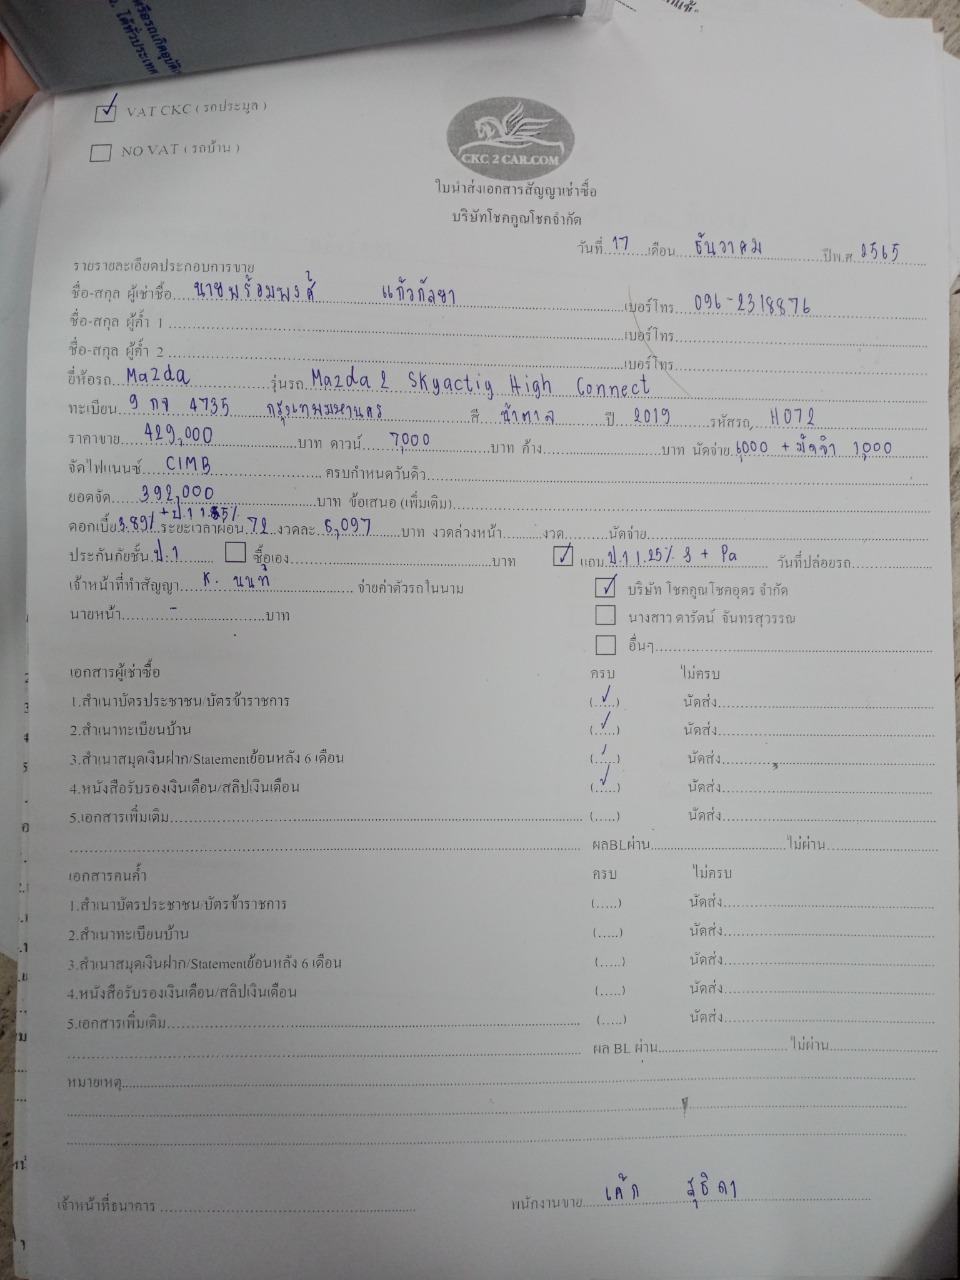 VAT CKC ( รถประมูล )
NO VAT ( รถบ้าน )
CKC 2 CAR.COM
ใบนำส่งเอกสารสัญญาเช่าซื้อ
บริษัทโชคคูณโชคจำกัด
วันที่ 17 เดือน ธันวาคม ปีพ.ศ. 2565
รายรายละเอียดประกอบการขาย
ชื่อ-สกุล ผู้เช่าซื้อ นายพร้อมพงศ์ แก้วกัลยา เบอร์โทร 096-2318876
ชื่อ-สกุล ผู้ค้ำ 1 เบอร์โทร
ชื่อ-สกุล ผู้ค้ำ 2 เบอร์โทร
ยี่ห้อรถ Mazda รุ่นรถ Mazda 2 Skyactiv High Connect
ทะเบียน 9 กจ 4735 กรุงเทพมหานคร สี น้ำตาล ปี 2019 รหัสรถ H072
ราคาขาย 429,000 บาท ดาวน์ 7,000 บาท ค้าง บาท นัดจ่าย 6,000 + มัดจำ 1,000
จัดไฟแนนซ์ CIMB ครบกำหนดวันดิว
ยอดจัด 392,000 บาท ข้อเสนอ (เพิ่มเติม)
ดอกเบี้ย 3.89% ระยะเวลาผ่อน 72 งวดละ 6,097 บาท งวดล่วงหน้า งวด นัดจ่าย
ประกันภัยชั้น ป.1 ซื้อเอง บาท แถม ป.1 1.25% 3 + Pa วันที่ปล่อยรถ
เจ้าหน้าที่ทำสัญญา K. นนท์ จ่ายค่าตัวรถในนาม บริษัท โชคคูณโชคอุดร จำกัด
นายหน้า - บาท นางสาว ดารัตน์ จันทรสุวรรณ
อื่นๆ
เอกสารผู้เช่าซื้อ ครบ ไม่ครบ
1.สำเนาบัตรประชาชน/บัตรข้าราชการ (.....) นัดส่ง
2.สำเนาทะเบียนบ้าน (.....) นัดส่ง
3.สำเนาสมุดเงินฝาก/Statementย้อนหลัง 6 เดือน (.....) นัดส่ง
4.หนังสือรับรองเงินเดือน/สลิปเงินเดือน (.....) นัดส่ง
5.เอกสารเพิ่มเติม (.....) นัดส่ง
ผลBLผ่าน ไม่ผ่าน
เอกสารคนค้ำ ครบ ไม่ครบ
1.สำเนาบัตรประชาชน/บัตรข้าราชการ (.....) นัดส่ง
2.สำเนาทะเบียนบ้าน (.....) นัดส่ง
3.สำเนาสมุดเงินฝาก/Statementย้อนหลัง 6 เดือน (.....) นัดส่ง
4.หนังสือรับรองเงินเดือน/สลิปเงินเดือน (.....) นัดส่ง
5.เอกสารเพิ่มเติม (.....) นัดส่ง
ผล BL ผ่าน ไม่ผ่าน
หมายเหตุ
เจ้าหน้าที่ธนาคาร พนักงานขาย เค้ก สุธิดา